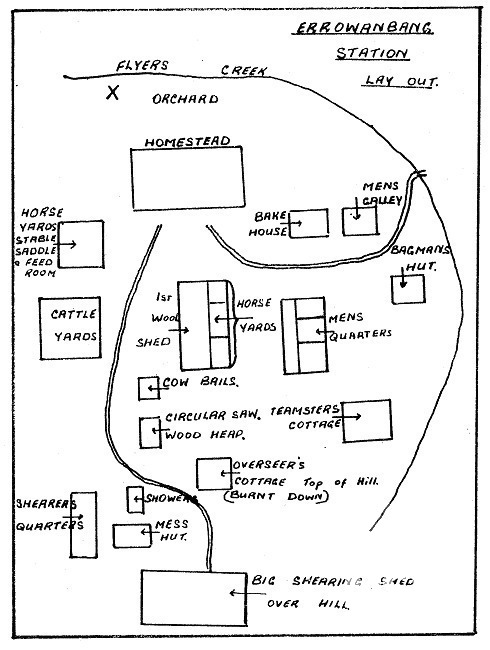 ERROWANBANG
STATION
LAY OUT.
FLYERS CREEK
X
ORCHARD
HOMESTEAD
MENS
GALLEY
BAKE
HOUSE
HORSE
YARDS
STABLE
SADDLE
& FEED
ROOM
BAGMANS
HUT.
CATTLE
YARDS
1ST
WOOL
SHED
HORSE
YARDS
MENS
QUARTERS
COW BAILS.
CIRCULAR SAW.
WOOD HEAP.
TEAMSTERS
COTTAGE
OVERSEER'S
COTTAGE TOP OF HILL.
(BURNT DOWN)
SHOWERS
SHEARERS
QUARTERS
MESS
HUT.
BIG SHEARING SHED
OVER HILL.